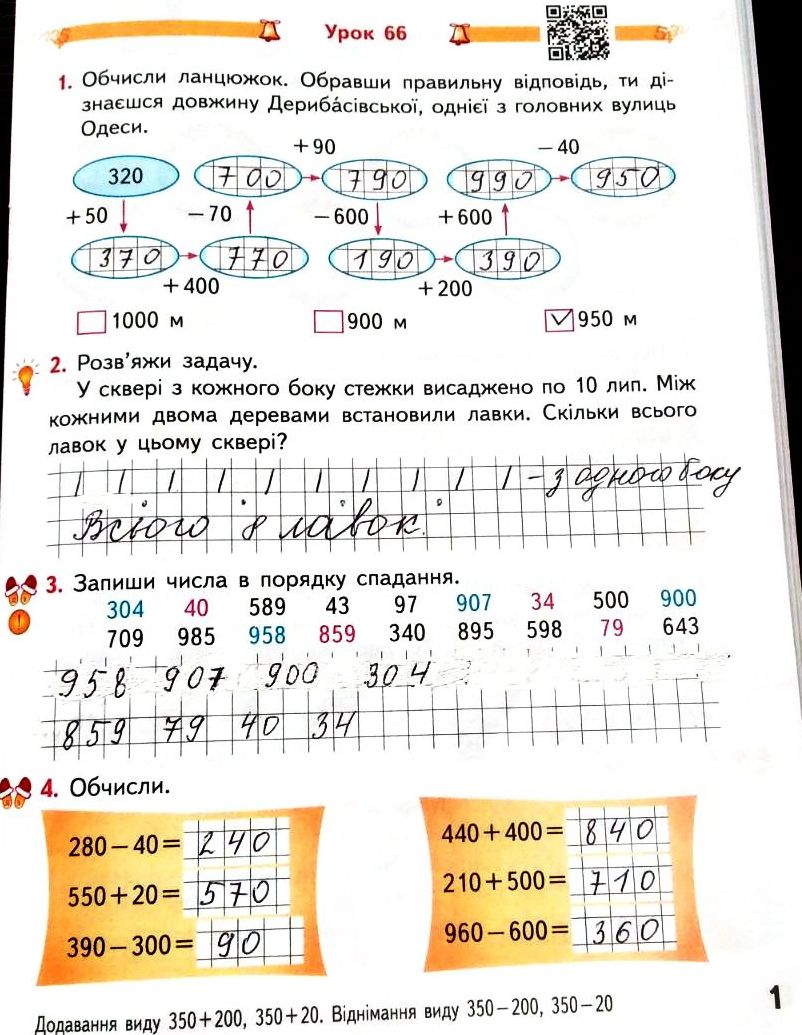 Урок 66
1. Обчисли ланцюжок. Обравши правильну відповідь, ти ді-
знаєшся довжину Дериба́сівської, однієї з головних вулиць
Одеси.
+90 −40
320 700 790 990 950
+50 −70 −600 +600
370 770 190 390
+400 +200
1000 м 900 м 950 м
2. Розв’яжи задачу.
У сквері з кожного боку стежки висаджено по 10 лип. Між
кожними двома деревами встановили лавки. Скільки всього
лавок у цьому сквері?
| | | | | | | | | | – з одного боку
Всього 8 лавок.
3. Запиши числа в порядку спадання.
304 40 589 43 97 907 34 500 900
709 985 958 859 340 895 598 79 643
958 907 900 304
859 79 40 34
4. Обчисли.
280−40= 240 440+400= 840
550+20= 570 210+500= 710
390−300= 90 960−600= 360
Додавання виду 350+200, 350+20. Віднімання виду 350−200, 350−20
1